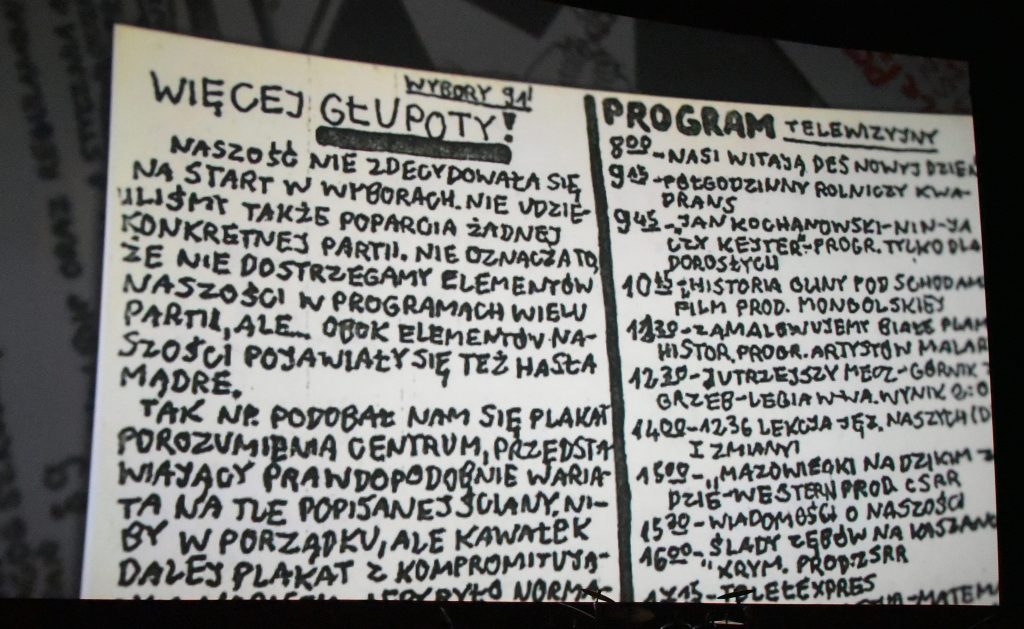 WYBORY 91!
WIĘCEJ GŁUPOTY!
NASZOŚĆ NIE ZDECYDOWAŁA SIĘ
NA START W WYBORACH. NIE UDZIE-
LILIŚMY TAKŻE POPARCIA ŻADNEJ
KONKRETNEJ PARTII. NIE OZNACZA TO,
ŻE NIE DOSTRZEGAMY ELEMENTÓW
NASZOŚCI W PROGRAMACH WIELU
PARTII, ALE... OBOK ELEMENTÓW NA-
SZOŚCI POJAWIAŁY SIĘ TEŻ HASŁA
MĄDRE.
TAK NP. PODOBAŁ NAM SIĘ PLAKAT
POROZUMIENIA CENTRUM, PRZEDSTA
WIAJĄCY PRAWDOPODOBNIE WARIA-
TA NA TLE POPISANEJ ŚCIANY. NI-
BY W PORZĄDKU, ALE KAWAŁEK
DALEJ PLAKAT Z KOMPROMITUJĄ-
NORMA-
PROGRAM TELEWIZYJNY
800-NASI WITAJĄ DES NOWYJ DZIEŃ
915-PÓŁGODZINNY ROLNICZY KWA-
DRANS
945-"JAN KOCHANOWSKI-NIN-JA
CZY KEJTER"-PROGR. TYLKO DLA
DOROSŁYCH
HISTORIA GLINY POD SCHODAM
FILM PROD. MONGOLSKIEJ
ZAMALOWUJEMY BIAŁE PLAM
HISTOR. PROGR. ARTYSTÓW MALAR
1230-JUTRZEJSZY MECZ-GÓRNIK
GRZEB-LEGIA W-WA. WYNIK 2:0
1400-1236 LEKCJA JĘZ. NASZYCH
I ZMIANY
1500-"MAZOWIECKI NA DZIKIM Z
DZIE-WESTERN PROD. CSRR
1530-WIADOMOŚCI O NASZOŚCI
1600-"ŚLADY ZĘBÓW NA KASZAN
KRYM. PROD. ZSRR
1715-TELEEXPRES
-MATEM